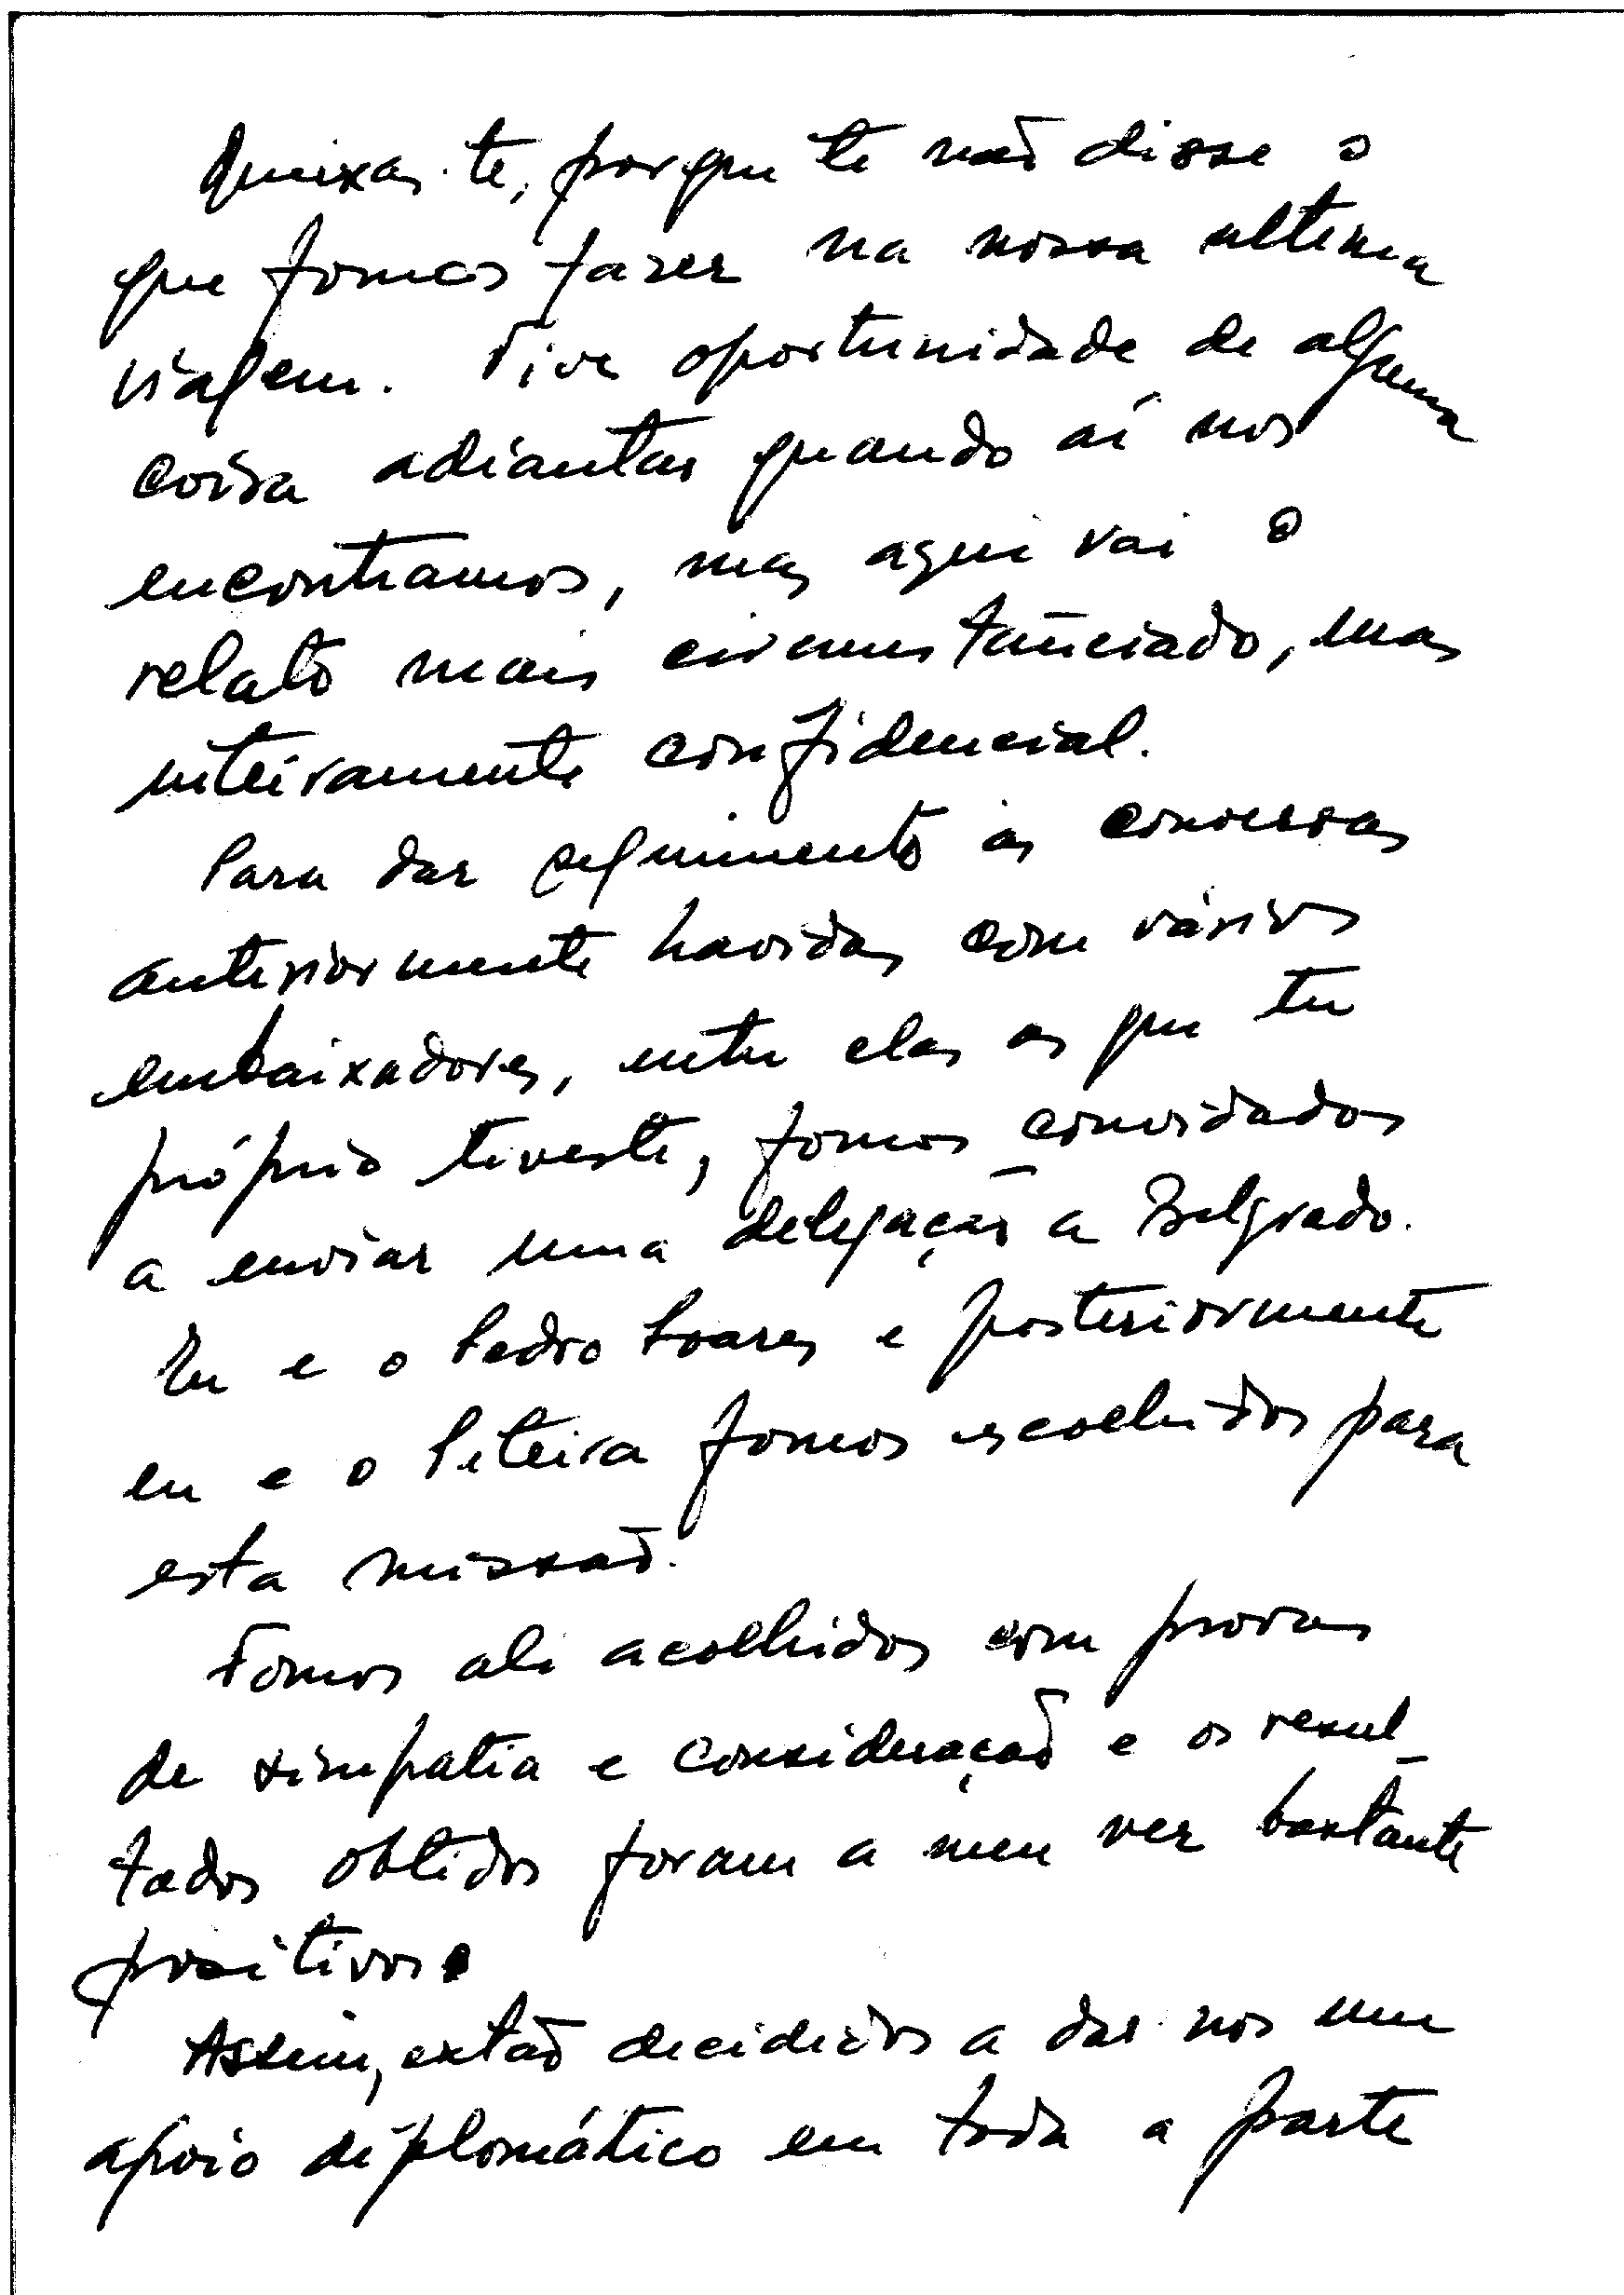 Queixas-te, porque te não disse o
que fomos fazer na nossa ultima
viagem. Tive oportunidade de alguma
coisa adiantar quando aí nos
encontramos, mas aqui vai o
relato mais circunstânciado, mas
inteiramente confidencial.
Para dar seguimento às conversas
anteriormente havidas com vários
embaixadores, entre elas as que tu
próprio tiveste, fomos convidados
a enviar uma delegação a Belgrado.
Eu e o Pedro Soares e posteriormente
eu e o Piteira fomos escolhidos para
esta missão.
Fomos ali acolhidos com provas
de simpatia e consideração e os resul-
tados obtidos foram a meu ver bastante
positivos.
Assim, estão decididos a dar-nos um
apoio diplomático em toda a parte